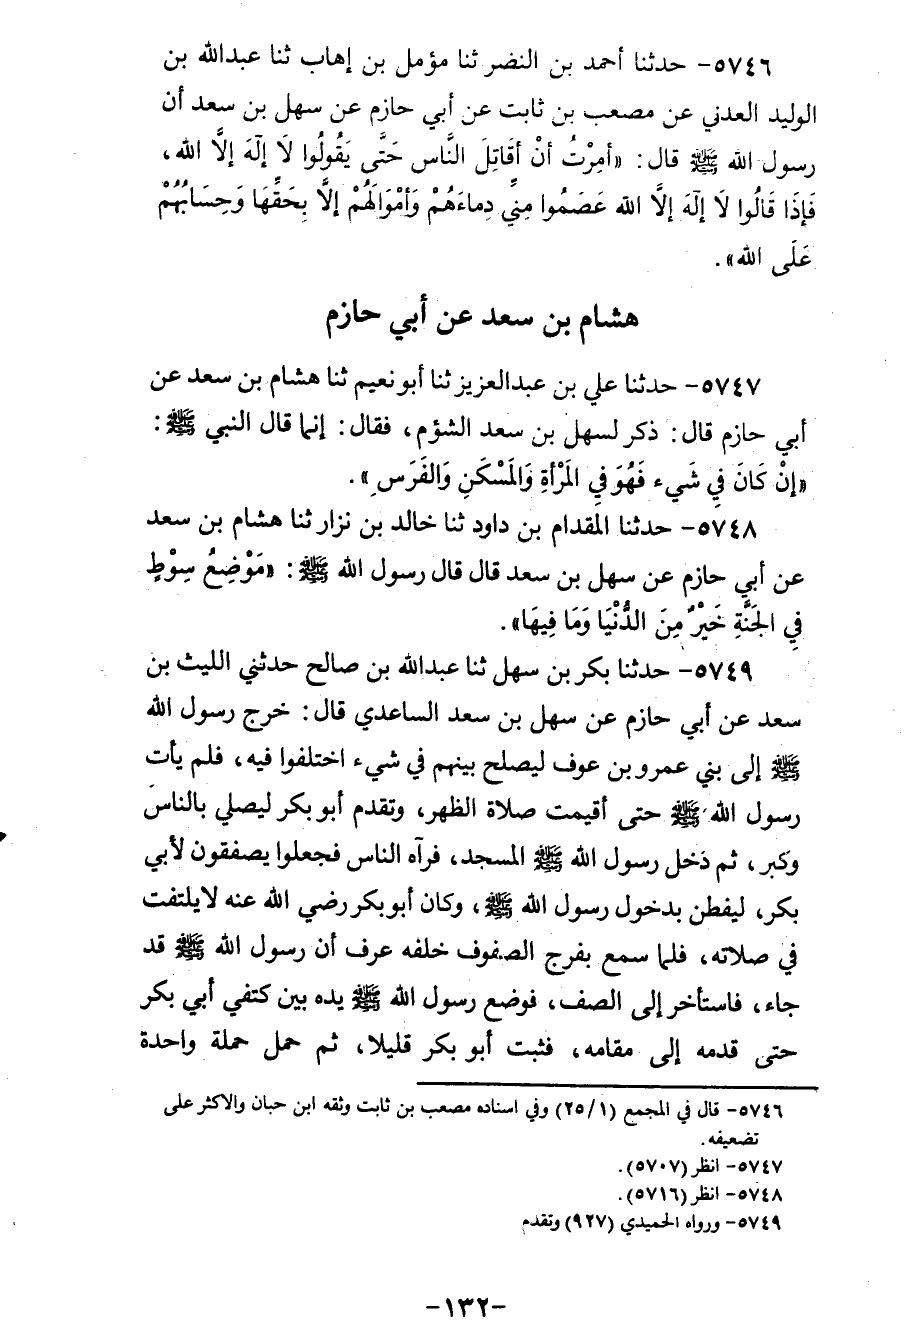 ٥٧٤٦- حدثنا أحمد بن النضر ثنا مؤمل بن إهاب ثنا عبدالله بن
الوليد العدني عن مصعب بن ثابت عن أبي حازم عن سهل بن سعد أن
رسول الله ﷺ قال: «أمِرْتُ أنْ أقَاتِلَ النَّاس حَتَّى يَقُولُوا لَا إلَهَ إلَّا الله،
فَإذَا قَالُوا لَا إلَهَ إلَّا الله عَصَمُوا مِنِّي دِماءَهُمْ وَأمْوَالَهُمْ إلَّا بِحَقِّهَا وَحِسَابُهُمْ
عَلَى الله».
هشام بن سعد عن أبي حازم
٥٧٤٧- حدثنا علي بن عبدالعزيز ثنا أبو نعيم ثنا هشام بن سعد عن
أبي حازم قال: ذكر لسهل بن سعد الشؤم، فقال: إنما قال النبي ﷺ:
«إنْ كَانَ فِي شَيء فَهُوَ فِي المَرْأةِ وَالمَسْكَنِ وَالفَرَسِ».
٥٧٤٨- حدثنا المقدام بن داود ثنا خالد بن نزار ثنا هشام بن سعد
عن أبي حازم عن سهل بن سعد قال قال رسول الله ﷺ: «مَوْضِعُ سِوْطٍ
فِي الجَنَّةِ خَيْرٌ مِنَ الدُّنْيَا وَمَا فِيهَا».
٥٧٤٩- حدثنا بكر بن سهل ثنا عبدالله بن صالح حدثني الليث بن
سعد عن أبي حازم عن سهل بن سعد الساعدي قال: خرج رسول الله
ﷺ إلى بني عمرو بن عوف ليصلح بينهم في شيء اختلفوا فيه، فلم يأت
رسول الله ﷺ حتى أقيمت صلاة الظهر، وتقدم أبو بكر ليصلي بالناس
وكبر، ثم دخل رسول الله ﷺ المسجد، فرآه الناس فجعلوا يصفقون لأبي
بكر، ليفطن بدخول رسول الله ﷺ، وكان أبو بكر رضي الله عنه لا يلتفت
في صلاته، فلما سمع بفرج الصفوف خلفه عرف أن رسول الله ﷺ قد
جاء، فاستأخر إلى الصف، فوضع رسول الله ﷺ يده بين كتفي أبي بكر
حتى قدمه إلى مقامه، فثبت أبو بكر قليلا، ثم حمل حملة واحدة
٥٧٤٦- قال في المجمع (٢٥/١) وفي اسناده مصعب بن ثابت وثقه ابن حبان والاكثر على
تضعيفه.
٥٧٤٧- انظر (٥٧٠٧).
٥٧٤٨- انظر (٥٧١٦).
٥٧٤٩- ورواه الحميدي (٩٢٧) وتقدم
-١٣٢-